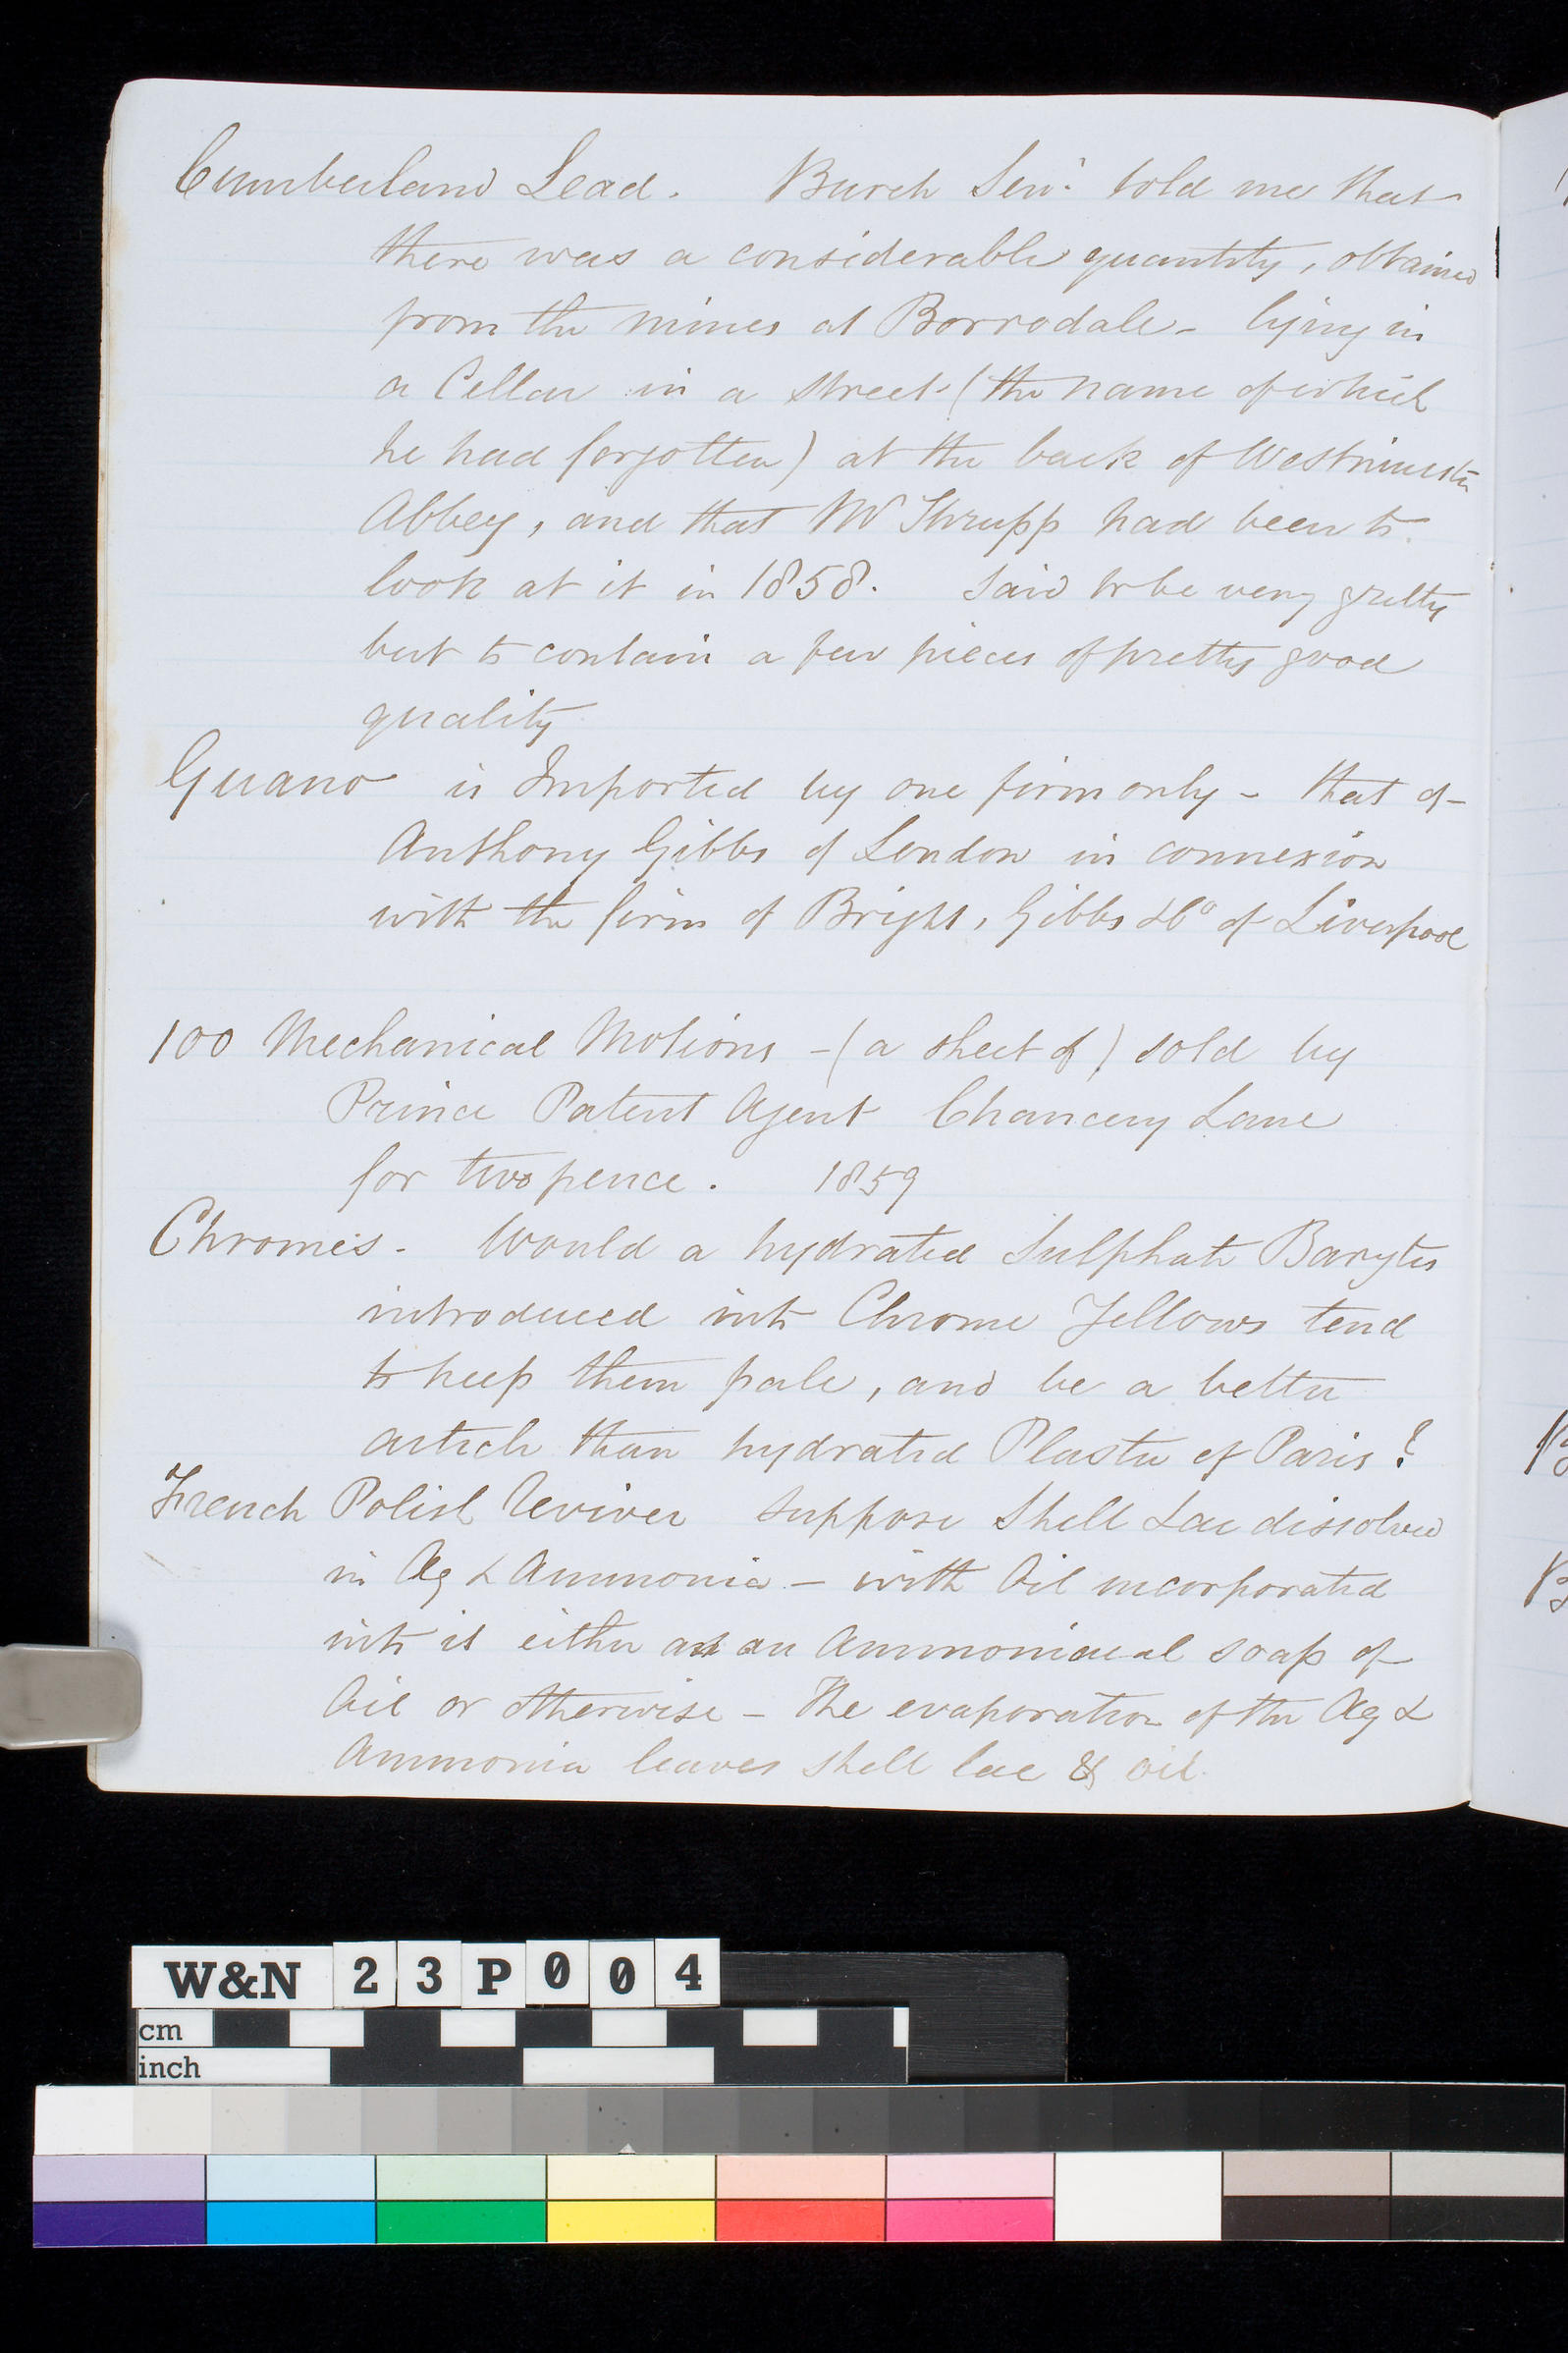 Cumberland Lead. Burch Senr. told me that
there was a considerable quantity, obtained
from the mines at Borrodale - lying in
a Cellar in a street (the name of which
he had forgotten) at the back of Westminster
Abbey, and that Mr Thrupp had been to
look at it in 1858. Said to be very gritty
but to contain a few pieces of pretty good
quality
Guano is Imported by one firm only - that of
Anthony Gibbs of London in connexion
with the firm of Bright, Gibbs & Co of Liverpool
100 Mechanical Motions - (a sheet of) sold by
Prince Patent Agent Chancery Lane
for twopence. 1859
Chromes. Would a hydrated Sulphate Barytes
introduced into Chrome Yellows tend
to keep them pale, and be a better
article than hydrated Plaster of Paris?
French Polish Reviver suppose Shell Lac dissolved
in Aq & Ammonia - with Oil incorporated
into it either as an Ammoniacal soap of
Oil or otherwise - The evaporation of the Aq &
Ammonia leaves shell lac & oil.
W&N 23P004
cm
inch